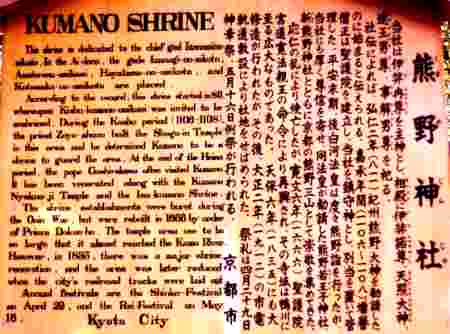 KUMANO SHRINE
The shrine is dedicated to the chief god Izanami-no-
mikoto. In the Aidono, the gods Izanagi-no-mikoto,
Amaterasu-omikami, Hayatama-no-mikoto, and
Kotosaka-no-mikoto are placed.
According to the record, this shrine started in 811
whenpriest Kishu Kumano-omikami was invited to be
enshrined. During the Kasho period (1106-1108),
the priest Zoyo shonin built the Shogo-in Temple in
this area and he determined Kumano to be a
shrine to guard the area. At the end of the Heian
period, the pope Goshirakawa often visited Kumano.
It has been venerated along with the Kumano
Nyakuo-ji Temple and the Ima Kumano Shrine.
The establishments were burnt during
the Onin War, but were rebuilt in 1666 by order
of Prince Dokan-ho. The temple area use to be
so large that it almost reached the Kamo River.
However, in 1835, there was a major shrine
renovation, and the area was later reduced
when the city's railroad tracks were laid out
Annual festivals are the Shinko Festival
on April 29, and the Rei Festival on May
16. Kyoto City
熊野神社
当社は伊弉冉尊を主神とし、相殿に伊弉諾尊、天照大神
、速玉男尊、事解男尊を祀る。
社伝によれば、弘仁二年(八一一)紀州熊野大神を勧請した
のに始まると伝えられる。嘉承年間(一一〇六~一一〇八)増誉
僧正は聖護院を建立し、当社を鎮守神とし、別当を置い
た。平安末期、後白河法皇は度々熊野へ行幸になったが
当社にも厚く尊信を寄せ
新熊野神社とともに京都の熊野三山として崇敬を集めてき
応仁の乱により焼失し、寛文六年(一六六六)聖護院
宮道寛法親王の命令により再興され、その寺域は鴨川
に至る広大なものであった。天保六年(一八三五)にも大
修造が行われたが、その後、大正二年(一九一二)の市電
軌道敷設により社地をせばめられた。祭礼は四月二十九日
神幸祭、五月十六日例祭が行われる。
京都市